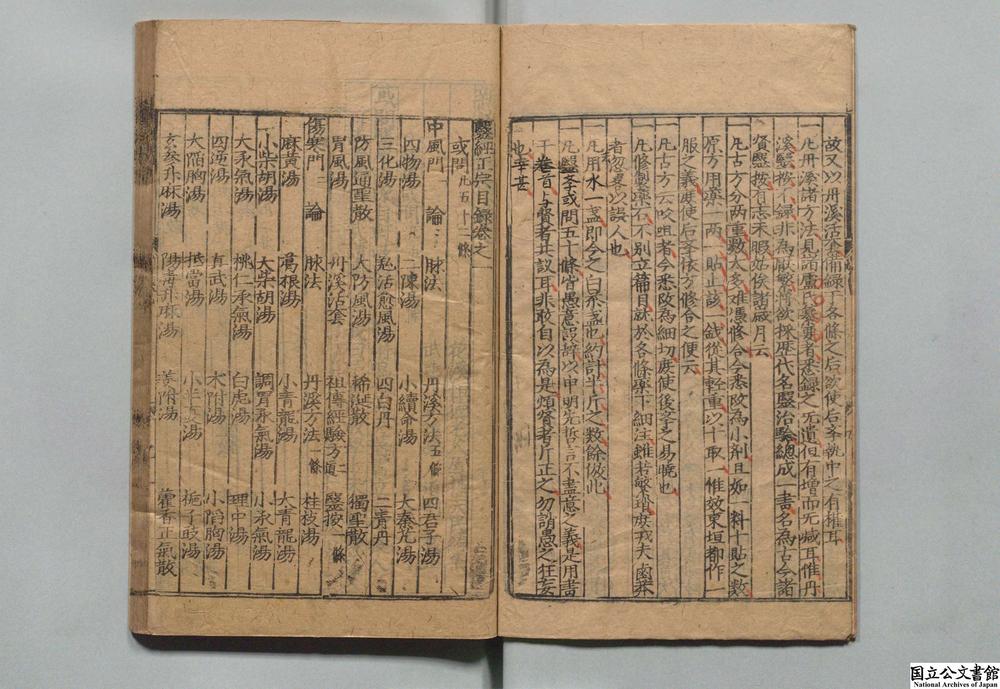 故又以丹溪活套備録于各條之后欲使后孝執中之有權耳
一凡丹溪諸方法見諸盧氏纂要者悉録之无遺但有增而无减耳惟丹
溪醫按不録非為厭繁将欲採歷代名醫治驗總成一書名為古今諸
賢醫按有志未暇姑俟諸歲月云
一凡古方分两重数太多难憑修合今悉改為小剂且如一料十貼之数
原方用藥一两一貼止該一錢從其輕重以十取一惟效東垣都作一
服之義庶使后孝依方修合之便云
一凡古方云㕮咀者今悉改為細切庶使後孝之易曉也
一凡修製藥石不别立篇目就於各條藥下細注雖若繁瑣庶我夫鹵莽
者忽畧以誤人也
一凡用水一盞即今之白茶盞也約計半斤之数餘倣此
一凡醫孝或問五十條皆愚意設辞以申明先哲言不盡意之義是用書
于卷首与賢者共議耳非敢自以為是煩賢者斤正之勿誚愚之狂妄
也幸甚
醫經正宗目録卷之一
或問 凡五十一條
中風門一 論 脉法 丹溪方法五條 四君子湯
四物湯 二陳湯 小續命湯 大秦艽湯
三化湯 羗活愈風湯 四白丹 二青丹
防風通聖散 大防風湯 稀涎散 獨聖散
胃風湯 丹溪活套 祖傳經驗方二道 醫按一條
傷寒門二 論 脉法 丹溪方法一條 桂枝湯
麻黃湯 葛根湯 小青龍湯 大青龍湯
小柴胡湯 大柴胡湯 調胃承氣湯 小承氣湯
大承氣湯 桃仁承氣湯 白虎湯 理中湯
四逆湯 真武湯 术附湯 小陷胸湯
大陷胸湯 抵當湯 小半夏湯 梔子豉湯
玄參升麻湯 陽毒升麻湯 姜附湯 藿香正氣散
国立公文書館
National Archives of Japan